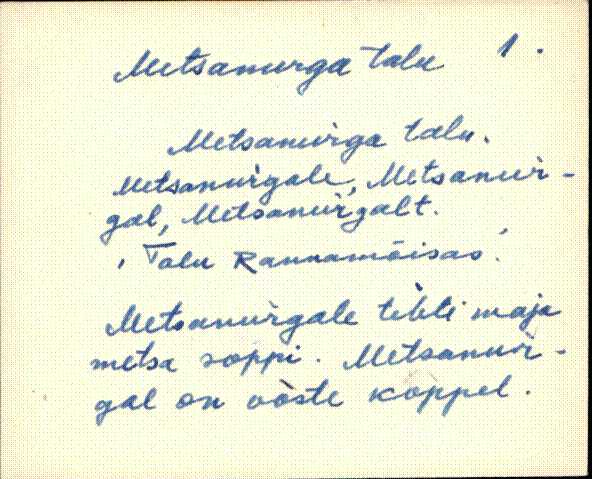 Metsanurga talu 1.
Metsanurga talu.
Metsanurgale, Metsanur-
gal, Metsanurgalt.
'Talu Rannamõisas'.
Metsanurgale tehti maja
metsa soppi. Metsanur-
gal on vòste koppel.